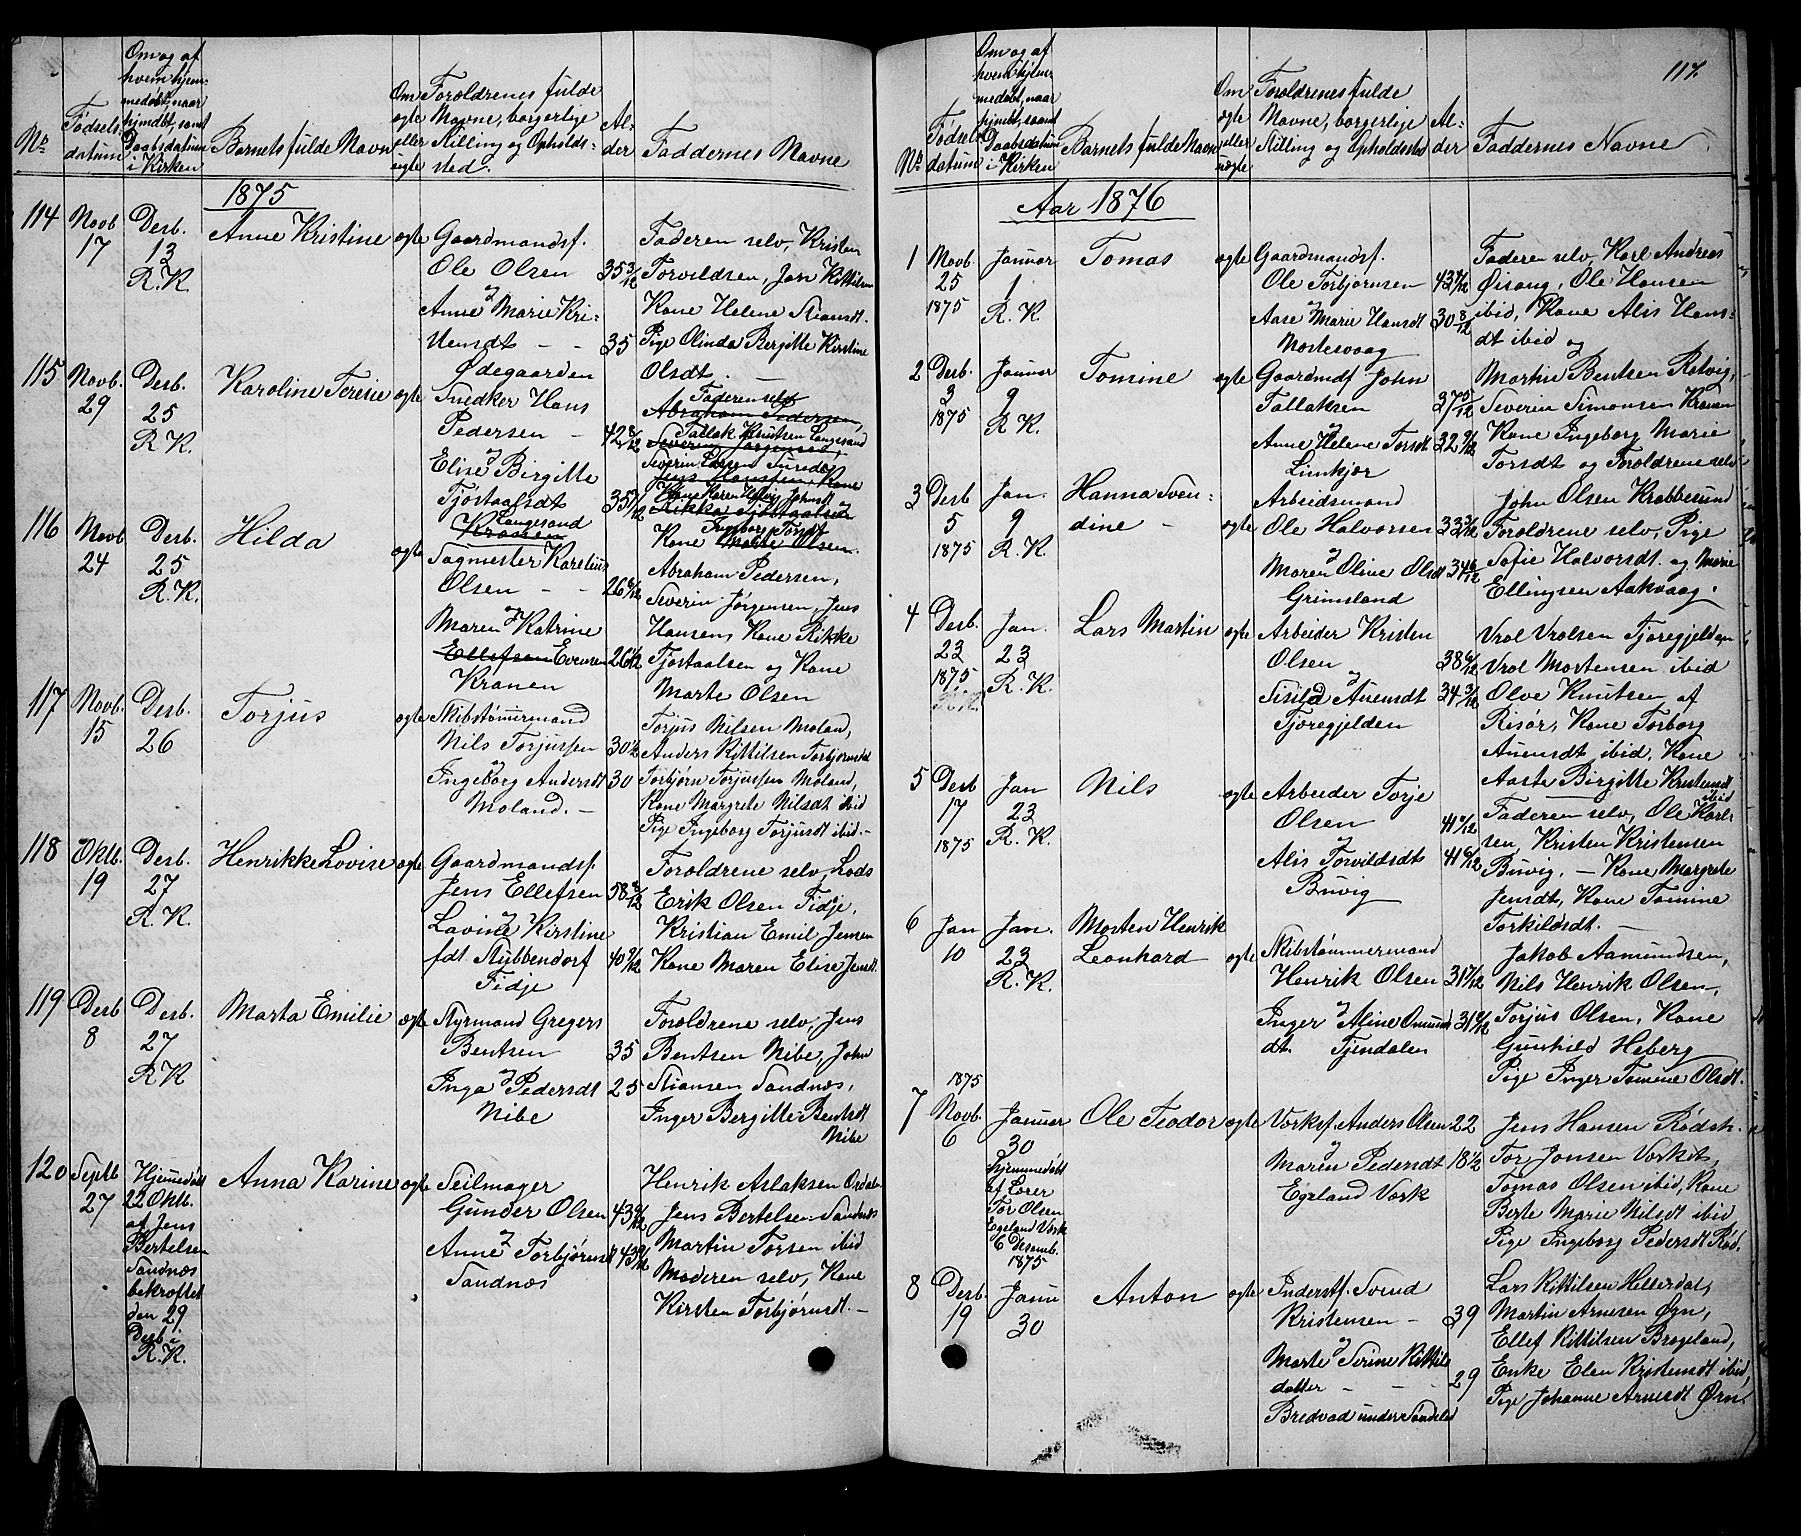 117.
No
Fødsels-
datum
Om og af
hvem hjem-
medøbt, naar
hjmdbt, samt
Daabsdatum
i Kirken
Barnets fulde Navn
Om
ægte
eller
uægte
Forældrenes fulde
Navne, borgerlige
Stilling og Opholds-
sted.
Al-
der
Faddernes Navne
1875
114
Novb
17
Desb.
13
R.K.
Anne Kristine
ægte
Gaardmandsf.
Ole Olsen 35 3/12
&
Anne Marie Kri-
stensdt - - 35
Ødegaarden
Faderen selv, Kristen
Torvildsen, Jan Kittilsen
Kone Helene Stiansdt.
Pige Olinda Bergitte Kirstine
Olsdt.
115
Novb.
29
Desb.
25
R.K.
Karoline Teresie
ægte
Snedker Hans
Pedersen - 42 8/12
&
Elise Birgitte
Tjøstaalsdt 35 7/12
Langesand
Kranen
Faderen selv
Abraham Pedersen,
Tallak Knutsen Langesand
Severin Jørgensen,
Severin Larsen
Jens Hansen, Kone
Kone Karen Helvig Johnsdt
Rikke Tjøstaalsen
Ingeborg Torsdt
Kone Marte Olsen.
116
Novb
24
Desb.
25
R.K.
Hilda
ægte
Sagmester Karelius
Olsen - - 26 8/12
&
Maren Katrine
Ellefsen Evensen 26 1/2
Kranen
Abraham Pedersen,
Severin Jørgensen, Jens
Hansens Kone Rikke
Tjøstaalsen og Kone
Marte Olsen
117
Novb.
15
Desb.
26
Torjus
ægte
Skibstømmermand
Nils Torjussen 30 1/2
&
Ingeborg Andersdt 30
Moland. -
Torjus Nilsen Moland,
Anders Kittilsen
Torbjørn Torjussen Moland,
Kone Margrete Nilsdt ibid
Pige Ingeborg Torjusdt ibid. -
118
Oktb.
19
Desb.
27
R.K.
Henrikke Lovise
ægte
Gaardmandsf.
Jens Ellefsen 58 8/12
&
Lavine Kirstine
fdt. Stubbendorf 40 9/12
Fidje
Forældrene selv, Lods
Erik Olsen Fidje,
Kristian Emil Jensen
Kone Maren Elise Jensdt.
119
Desb
8
Desb.
27
R.K
Marta Emilie
ægte
Styrmand Gregers
Bentsen 35
&
Inga Pedersdt 25
Nibe
Forældrene selv, Jens
Bentsen Nibe, John
Stiansen Sandnæs,
Inger Bergitte Bentsdt
Nibe
120
Septb
27
Hjemmedøbt
22 Oktb.
af Jens
Bertelsen
Sandnæs
bekræftet
den 29
Desb. i
R.K.
Anna Karine
ægte
Seilmager
Gunder Olsen 43 6/12
&
Anne Torbjørnsdt 43 9/12
Sandnæs
Henrik Aslaksen
Jens Bertelsen Sandnæs
Martin Torsen ibid
Moderen selv, Kone
Kirsten Torbjørnsdt. -
No
Fødsels
datum
Om og af
hvem hjem-
medøbt, naar
hjmdbt, samt
Daabsdatum
i Kirken
Barnets fulde Navn
Om
ægte
eller
uægte
Forældrenes fulde
Navne, borgerlige
Stilling og Opholdsted
Al-
der
Faddernes Navne
Aar 1876
1
Novb.
25
1875
Januar
1
R.K.
Tomas
ægte
Gaardmandsf.
Ole Torbjørnsen 43 9/12
&
Aase Marie Hansdt 30 8/12
Mostervaag
Faderen selv, Karl Andreas
Øisang, Ole Hansen
ibid, Kone Alis Hans-
dt ibid og
2
Desb.
3
1875
Januar
9
R.K.
Tomine
ægte
Gaardmdsf John
Tallaksen 37 5/12
&
Anne Helene Torsdt 32 9/12
Limkjær
Martin Bentsen Retvig,
Severin Simonsen Kranen
Kone Ingeborg Marie
Torsdt og Forældrene selv
3
Desb
5
1875
Jan.
9
R.K.
Hanna Sven-
dine -
ægte
Arbeidsmand
Ole Halvorsen 33 3/12
&
Maren Oline Olsdt 34 6/12
Grimsland
John Olsen Krabbesund
Forældrene selv, Pige
Sofie Halvorsdt. og Marie
Ellingsen Aakvaag.
4
Desb.
23
1875
Jan.
23
R.K.
Lars Martin
ægte
Arbeider Kristen
Olsen 38 6/12
&
Sisild Auensdt 34 3/12
Fjæregjelden
Vrol Vrolsen Fjæregjelden
Vrol Mortensen ibid
Olve Knutsen af
Risør, Kone Torborg
Auensdt ibid, Kone
Aaste Birgitte Kristensdt
ibid
5
Desb
17
1875
Jan
23
R.K.
Nils
ægte
Arbeider Torje
Olsen 41 6/12
&
Alis Torvildsdt 41 6/12
Buvig
Faderen selv, Ole Karl-
sen, Kristen Kristensen
Buvig. - Kone Margrete
Jensdt, Kone Tomine
Torkildsdt. -
6
Jan
10
Jan.
23
R.K.
Morten Henrik
Leonhard -
ægte
Skibstømmermand
Henrik Olsen 31 7/12
&
Inger Aline Omund 31 6/12
dt. Fjendalen
Jakob Aamundsen,
Nils Henrik Olsen,
Torjus Olsen, Kone
Gunhild Heberg
Pige Inger Tomine Olsdt.
7
1875
Novb.
6
Januar
30
hjemmedøbt
af Lærer
Tor Olsen
Egeland Værk
6 Desemb.
1875
Ole Teodor
ægte
Værksf. Anders Olsen 22
&
Maren Pedersdt 18 1/2
Egeland Værk
Jens Hansen Rødsk.
Tor Jonsen Værket,
Tomas Olsen ibid, Kone
Berte Marie Nilsdt ibid
Pige Ingeborg Pedersdt Rød.
8
Desb.
19
Janu
30
Anton
ægte
Inderstf. Svend
Kristensen - 39
&
Marte Serine Kittils
datter - - 29
Bredvad under Søndeled
Lars Kittilsen Hellerdal,
Martin Arnesen Øgn,
Ellef Kittilsen Brageland,
Enke Elen Kristensdt ibid,
Pige Johanne Arnesdt Øgn.